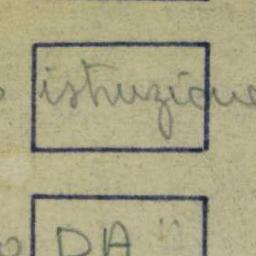 istruzione
DA "